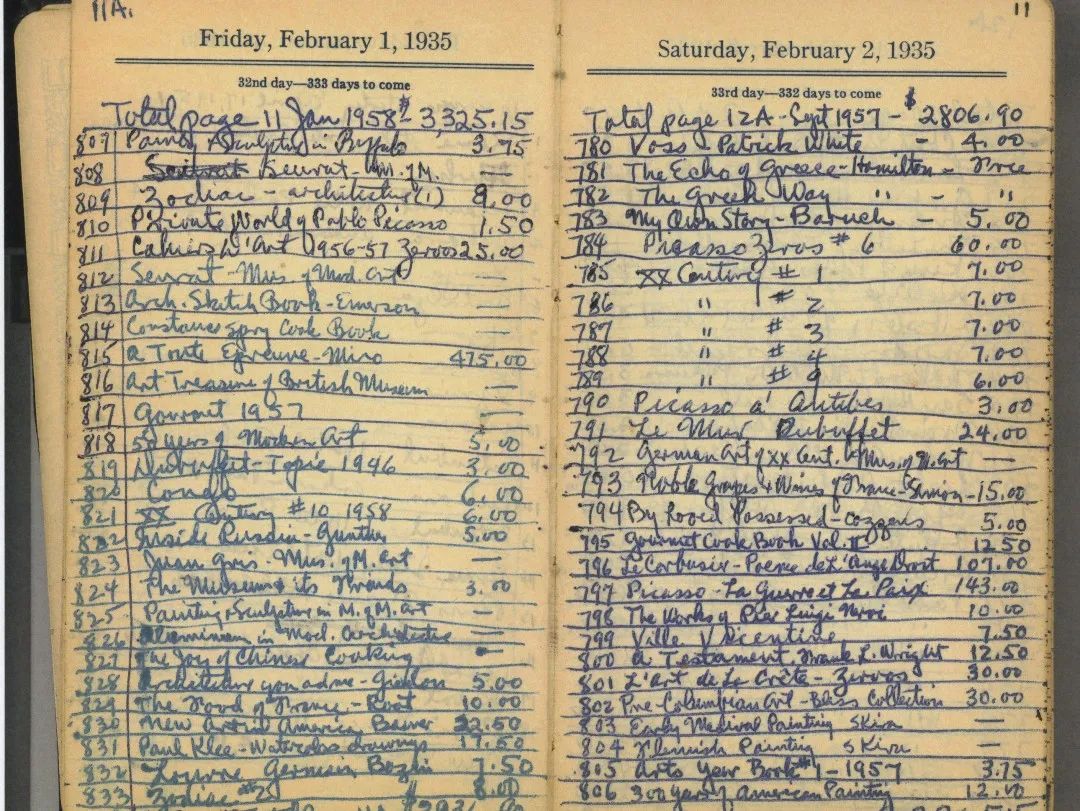 11A.
Friday, February 1, 1935
32nd day—333 days to come
Total page 11 Jan 1958 - $3,325.15
807 Painting & Sculpture in Buffalo 3.75
808 Seurat - M. of M. —
809 Zodiac - architecture (1) 8.00
810 Private World of Pablo Picasso 1.50
811 Cahiers D'Art 1956-57 Zervos 25.00
812 Seurat - Mus. of Mod. Art —
813 Arch. Sketch Book - Emerson —
814 Constance Spry Cook Book —
815 A Toute Epreuve - Miro 475.00
816 Art Treasure of British Museum —
817 Gourmet 1957 —
818 50 years of Modern Art 5.00
819 Dubuffet - Tapié 1946 3.00
820 Congo 6.00
821 XX Century #10 1958 6.00
822 Inside Russia - Gunther 5.00
823 Juan Gris - Mus. of M. Art —
824 The Museum & its Friends 3.00
825 Painting & Sculpture in M. of M. Art —
826 Aluminum in Mod. Architecture —
827 The Joy of Chinese Cooking —
828 Architecture you and me - Giedion 5.00
829 The Food of France - Root 10.00
830 New Art in America Bauer 22.50
831 Paul Klee - Watercolors drawings 17.50
832 Louvre Germain Bazin 7.50
833 Zodiac #2 8.00
11
Saturday, February 2, 1935
33rd day—332 days to come
Total page 12A - Sept 1957 - $2806.90
780 Voss - Patrick White - 4.00
781 The Echo of Greece - Hamilton - Free
782 The Greek Way " "
783 My Own Story - Baruch - 5.00
784 Picasso Zervos #6 60.00
785 XX Century #1 7.00
786 " #2 7.00
787 " #3 7.00
788 " #4 7.00
789 " #9 6.00
790 Picasso a' Antibes 3.00
791 Le Mur Dubuffet 24.00
792 German Art of XX Cent. Mus. of M. Art —
793 Noble Grapes & Wines of France - Simon - 15.00
794 By Loved Possessed - Cozzens 5.00
795 Gourmet Cook Book Vol. II 12.50
796 Le Corbusier - Poeme de L'Ange Droit 107.00
797 Picasso - La Guerre et La Paix 143.00
798 The Works of Pier Luigi Nervi 10.00
799 Ville Vicentine 7.50
800 A Testament, Frank L. Wright 12.50
801 L'art de La Crète - Zervos 30.00
802 Pre Columbian Art - Bliss Collection 30.00
803 Early Medieval Painting Skira —
804 Flemish Painting Skira —
805 Arts Year Book #1 - 1957 3.75
806 300 years of American Painting 12.00